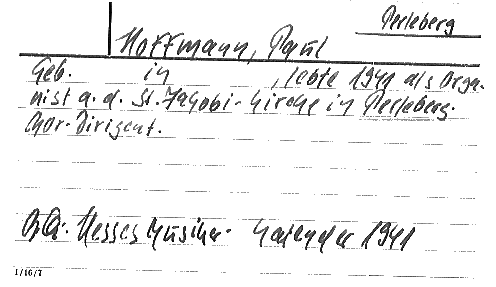 Perleberg
Hoffmann, Paul
Geb. in , lebte 1941 als Orga-
nist a. d. St. Jakobi-Kirche in Perleberg.
Chor-Dirigent.
Hesses Musiker-Kalender 1941
1/16/7